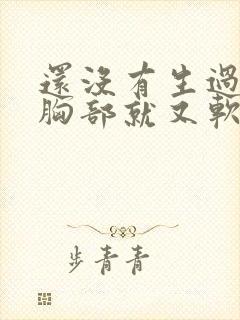 還沒有生過
胸部就又軟
步青青